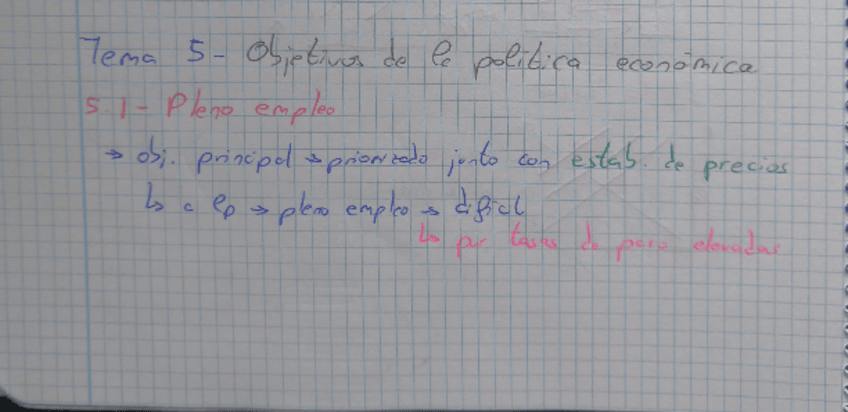 Tema 5- Objetivos de la política económica
5.1- Pleno empleo
→ obj. principal → priorizado junto con estab. de precios
↳ a lp → pleno empleo → dificil
↳ por tasas de paro elevadas